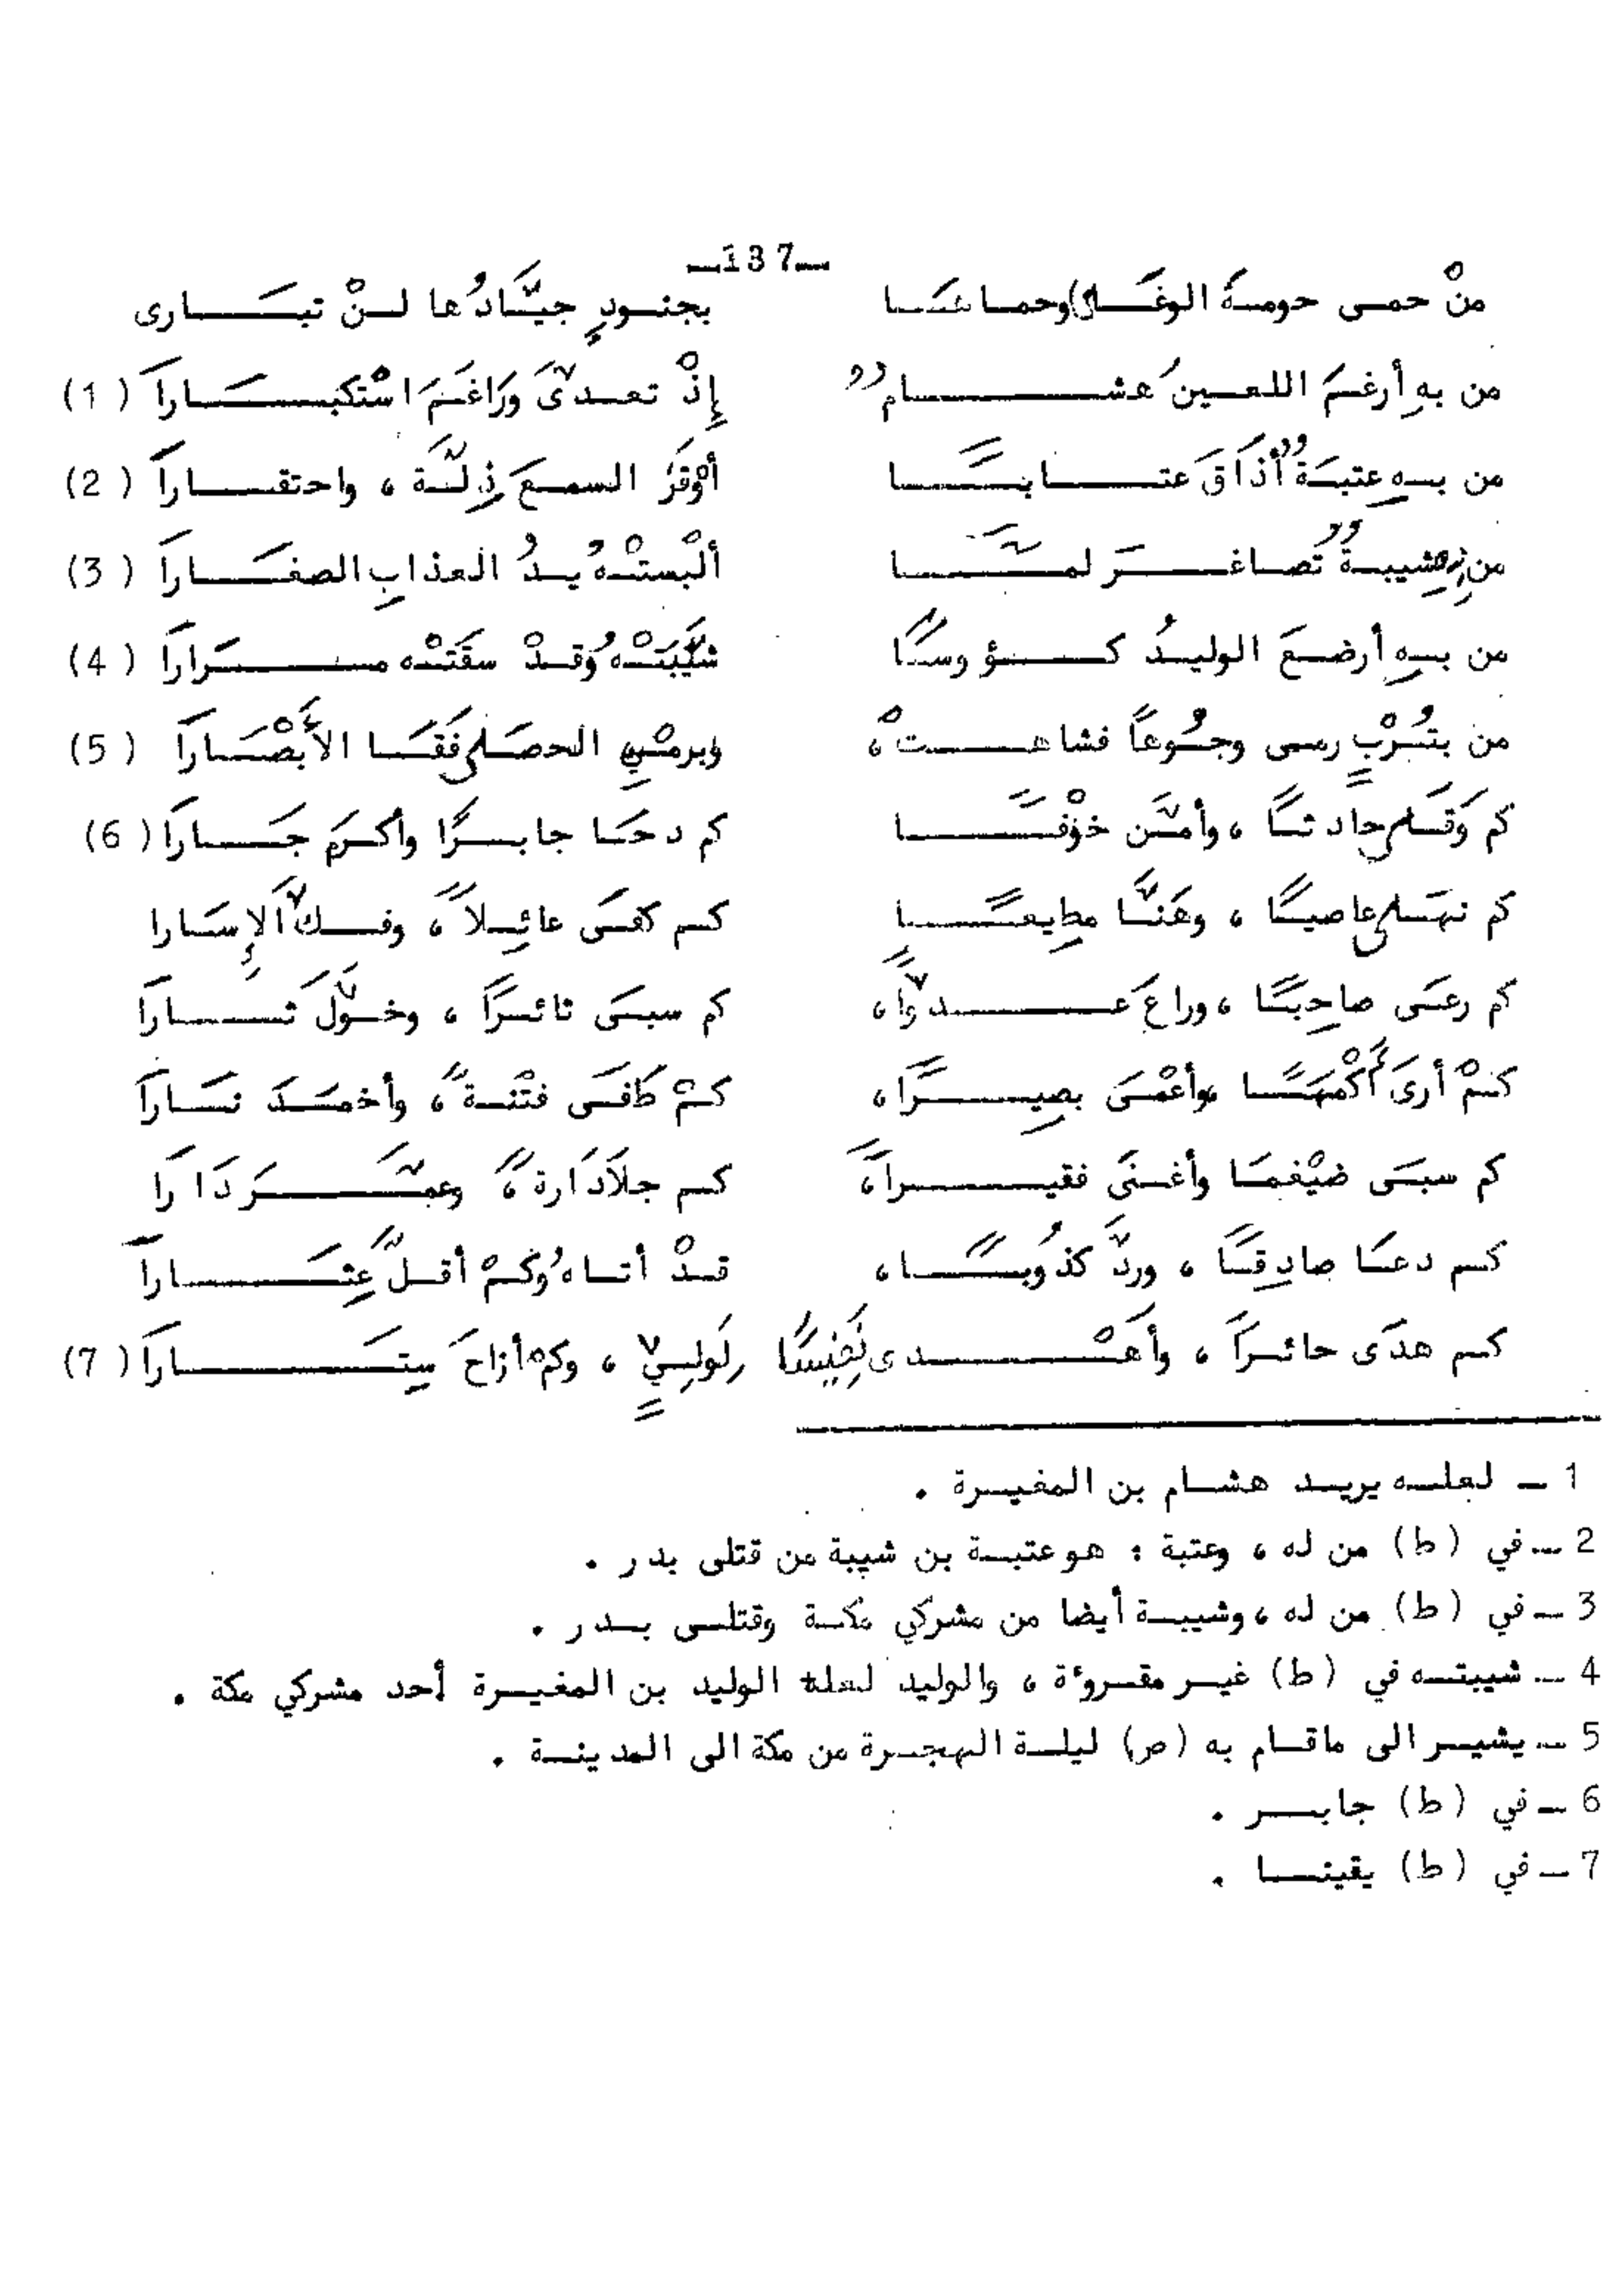 ـ137ـ
منْ حمى حومةَ الوغَى وحماهَا بجنودٍ جيَّادُها لنْ تبَارى
من بهِ أرغمَ اللعينُ هشامٌ إذْ تعدىَّ ورَاغَمَ اسْتكبَاراَ (1)
من بهِ عتبَةٌ أذَاقَ عتابًا أوْقرَ السمعَ ذِلَّة ، واحتقاراَ (2)
من بهِ شيبةٌ تصاغرَ لمَّا ألْبستْهُ يدُ العذابِ الصغَاراَ (3)
من بهِ أرضعَ الوليدُ كؤوسًا شيَّبَتْهُ وقدْ سقَتْه مرَاراَ (4)
من بتُرْبٍ رمى وجُوعاً فشاهتْ ، وبرمْيِ الحصَى فقَا الأَبْصَاراَ (5)
كم وَقَى حادثًا ، وأمَّن خوْفًا كم دحَا جابرًا وأكرَم جَاراَ (6)
كم نهَى عاصيًا ، وهَنَّا مطِيعًا كم كفَى عائِلاً ، وفكَّ الإِسَارا
كم رعَى صاحِبًا ، وراعَ عدوًّا ، كم سبىَ ثائرًا ، وخوَّلَ ثاراَ
كمْ أرىَ أَكْمهًا وأعْمَى بصِيرًا ، كمْ طَافَى فتْنةً ، وأخمدَ نَاراَ
كم سبَى ضيْغمَا وأغنىَ فقيراً ، كم جلاَ دَارةً ، وعمَّرَ دَارَا
كم دعَا صادِقًا ، وردَّ كذُوبًا ، قدْ أتاهُ وكمْ أقلَّ عِثَاراَ
كم هدَى حائراً ، وأهْدى نَفِيسًا لِوَلِيٍّ ، وكمْ أزاحَ سِتَاراَ (7)
1 ـ لعله يريد هشام بن المغيرة .
2 ـ في (ط) من له ، وعتبة : هو عتبة بن شيبة من قتلى بدر .
3 ـ في (ط) من له ، وشيبة أيضا من مشركي مكة وقتلى بدر .
4 ـ شيبته في (ط) غير مقروءة ، والوليد لعله الوليد بن المغيرة أحد مشركي مكة .
5 ـ يشير الى ماقام به (ص) ليلة الهجرة من مكة الى المدينة .
6 ـ في (ط) جابر .
7 ـ في (ط) يقينا .